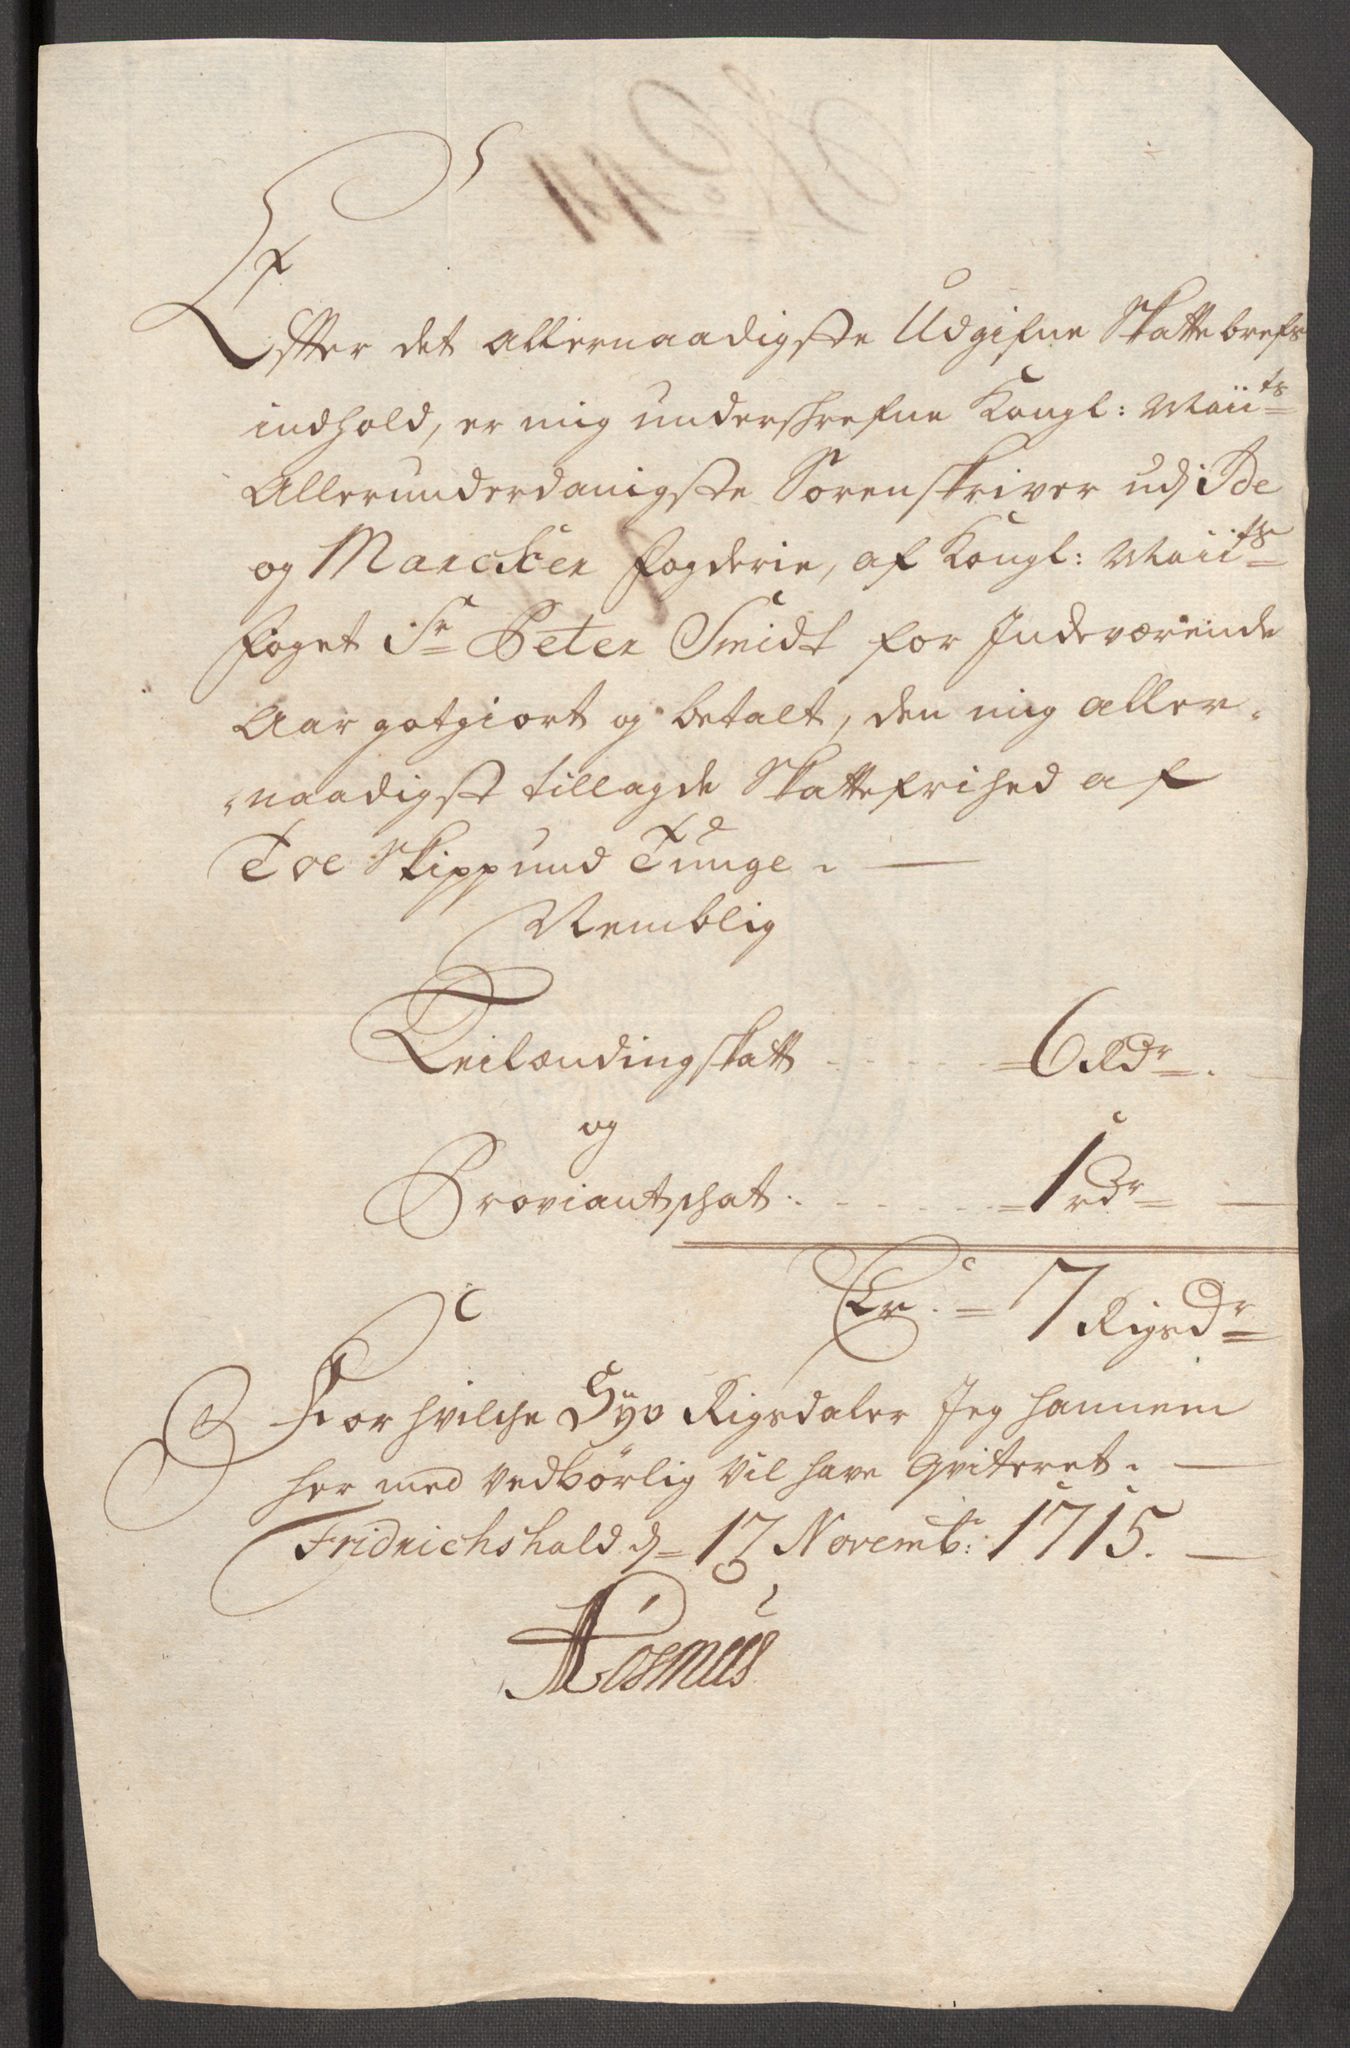 Effter det allernaadigste Udgifne Skattebrefs
indhold, er mig underskrefne Kongl: Maii^ts
Allerunderdanigste Sorenskriver udj Ide
og Marcker fogderie, af Kongl: Maii^ts
foget Sr Peter Smidt for Indeværende
Aar gotgiort og betalt, den mig aller-
naadigst tillagde Skattefrihed af
Toe Skippund Tunge.
Nemblig
Leilændingskatt 6 Rdr
og
Proviantschat. 1 rdr
Er. 7 Rigsdr
For hvilche Syv Rigsdaler Jeg hannem
her med vedbørlig vil have qviteret.
Fridrichshald d 17 Novemb: 1715.